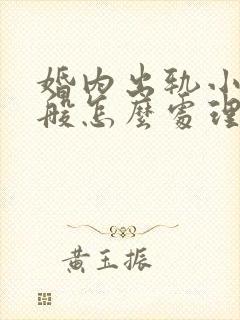 婚内出轨小
般怎麼處理
黄玉振